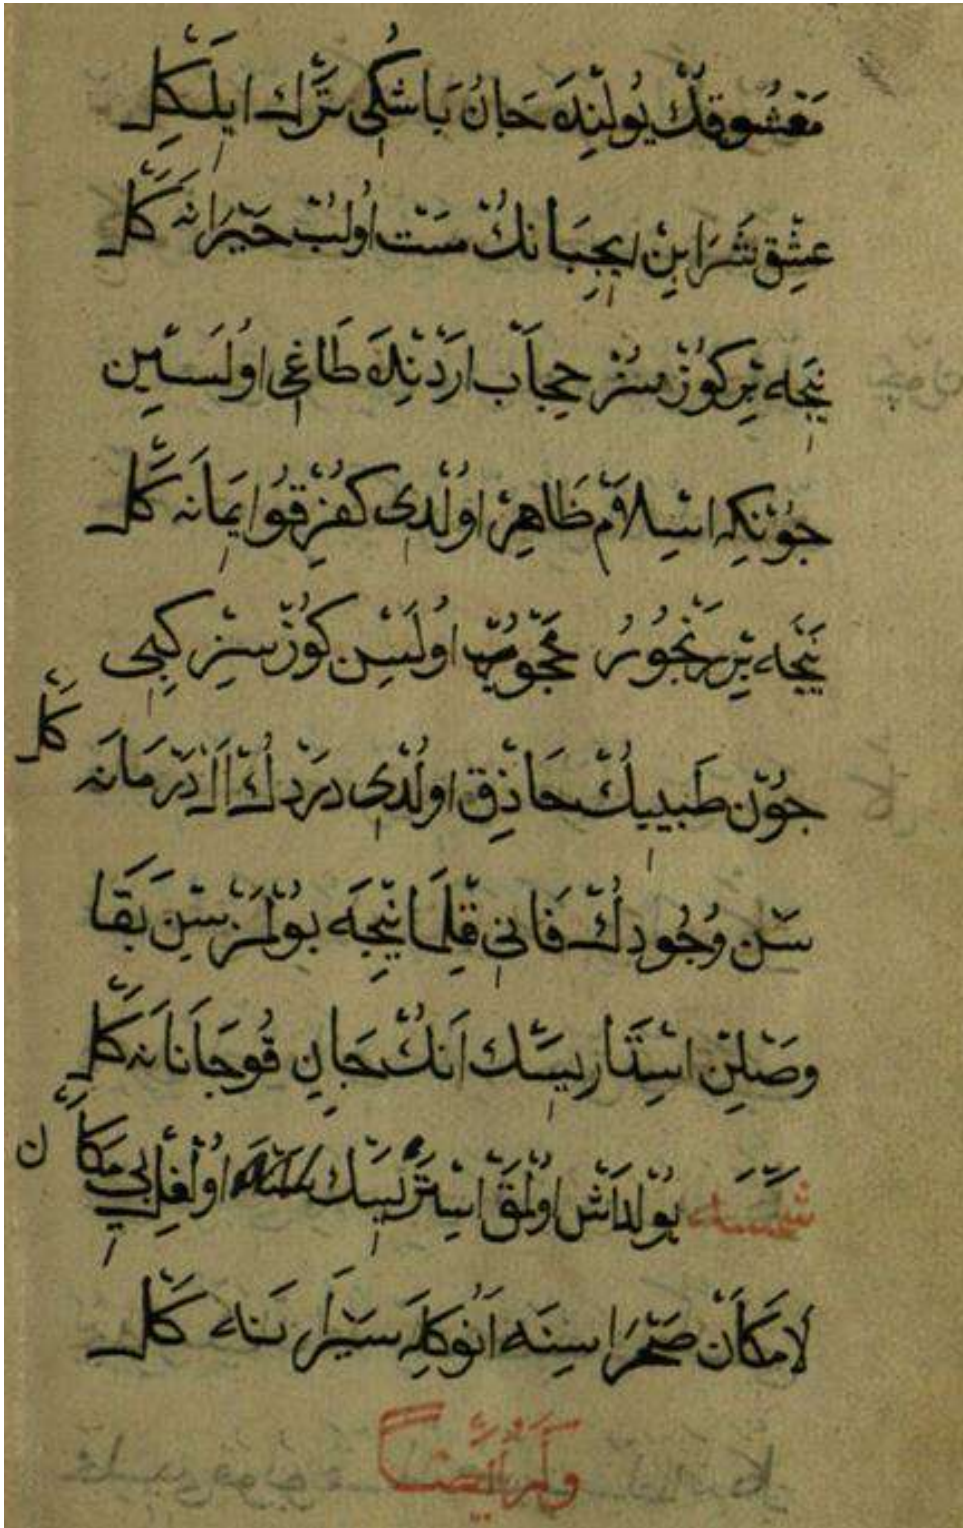 معشوقك يولنده جان باشكى ترك ايلكل
عشق شرابن ايچبانك مست اولب حيرانه كل
نيجه بر كوزسز حجاب اردنده طاغى اولسين
چونكه اسلام ظاهر اولدى كفر قو ايمانه كل
نيجه بر رنجور محجوب اولسن كوزسز كبى
چون طبيبك حاذق اولدى دردك ال درمانه كل
سن وجودك فانى قلما نيجه بولمزسن بقا
وصلن استاريسك انك جان قو جانانه كل
شمسه يولداش اولمق استريسك اولغل بى مكان
لامكان صحراسنه انوكله سيرانه كل
وله ايضا